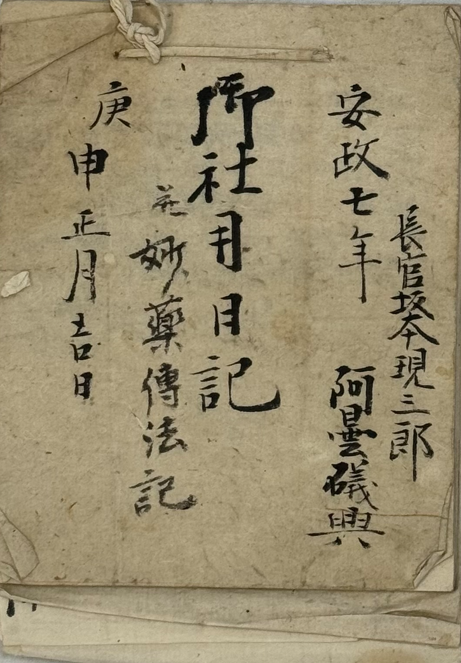 長官坂本現三郎
安政七年
阿曇礒興
御社用日記
并妙藥傳法記
庚申正月吉日